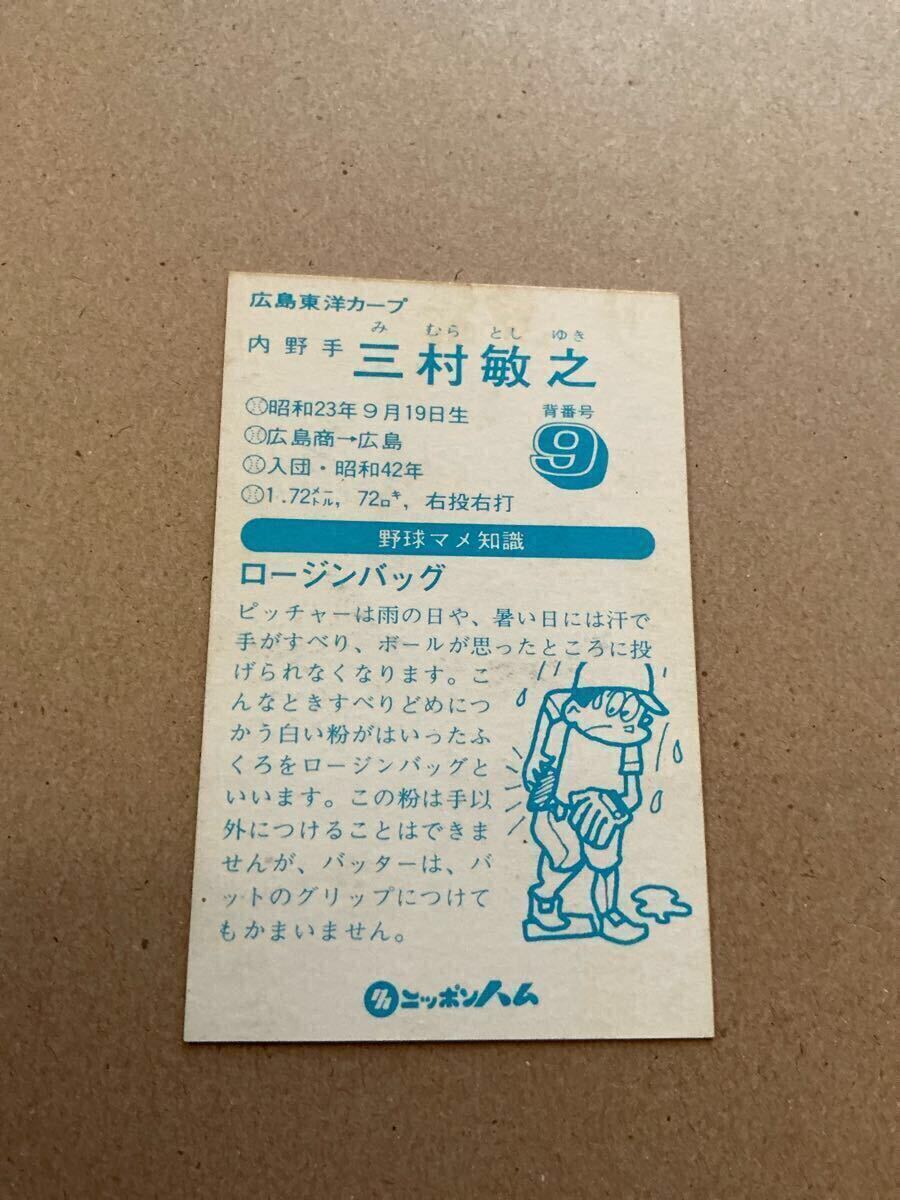 広島東洋カープ
み むら とし ゆき
内野手 三村敏之
昭和23年9月19日生
広島商→広島
入団・昭和42年
1.72メートル, 72キロ, 右投右打
背番号
9
野球マメ知識
ロージンバッグ
ピッチャーは雨の日や、暑い日には汗で
手がすべり、ボールが思ったところに投
げられなくなります。こ
んなときすべりどめにつ
かう白い粉がはいったふ
くろをロージンバッグと
いいます。この粉は手以
外につけることはできま
せんが、バッターは、バ
ットのグリップにつけて
もかまいません。
ニッポンハム